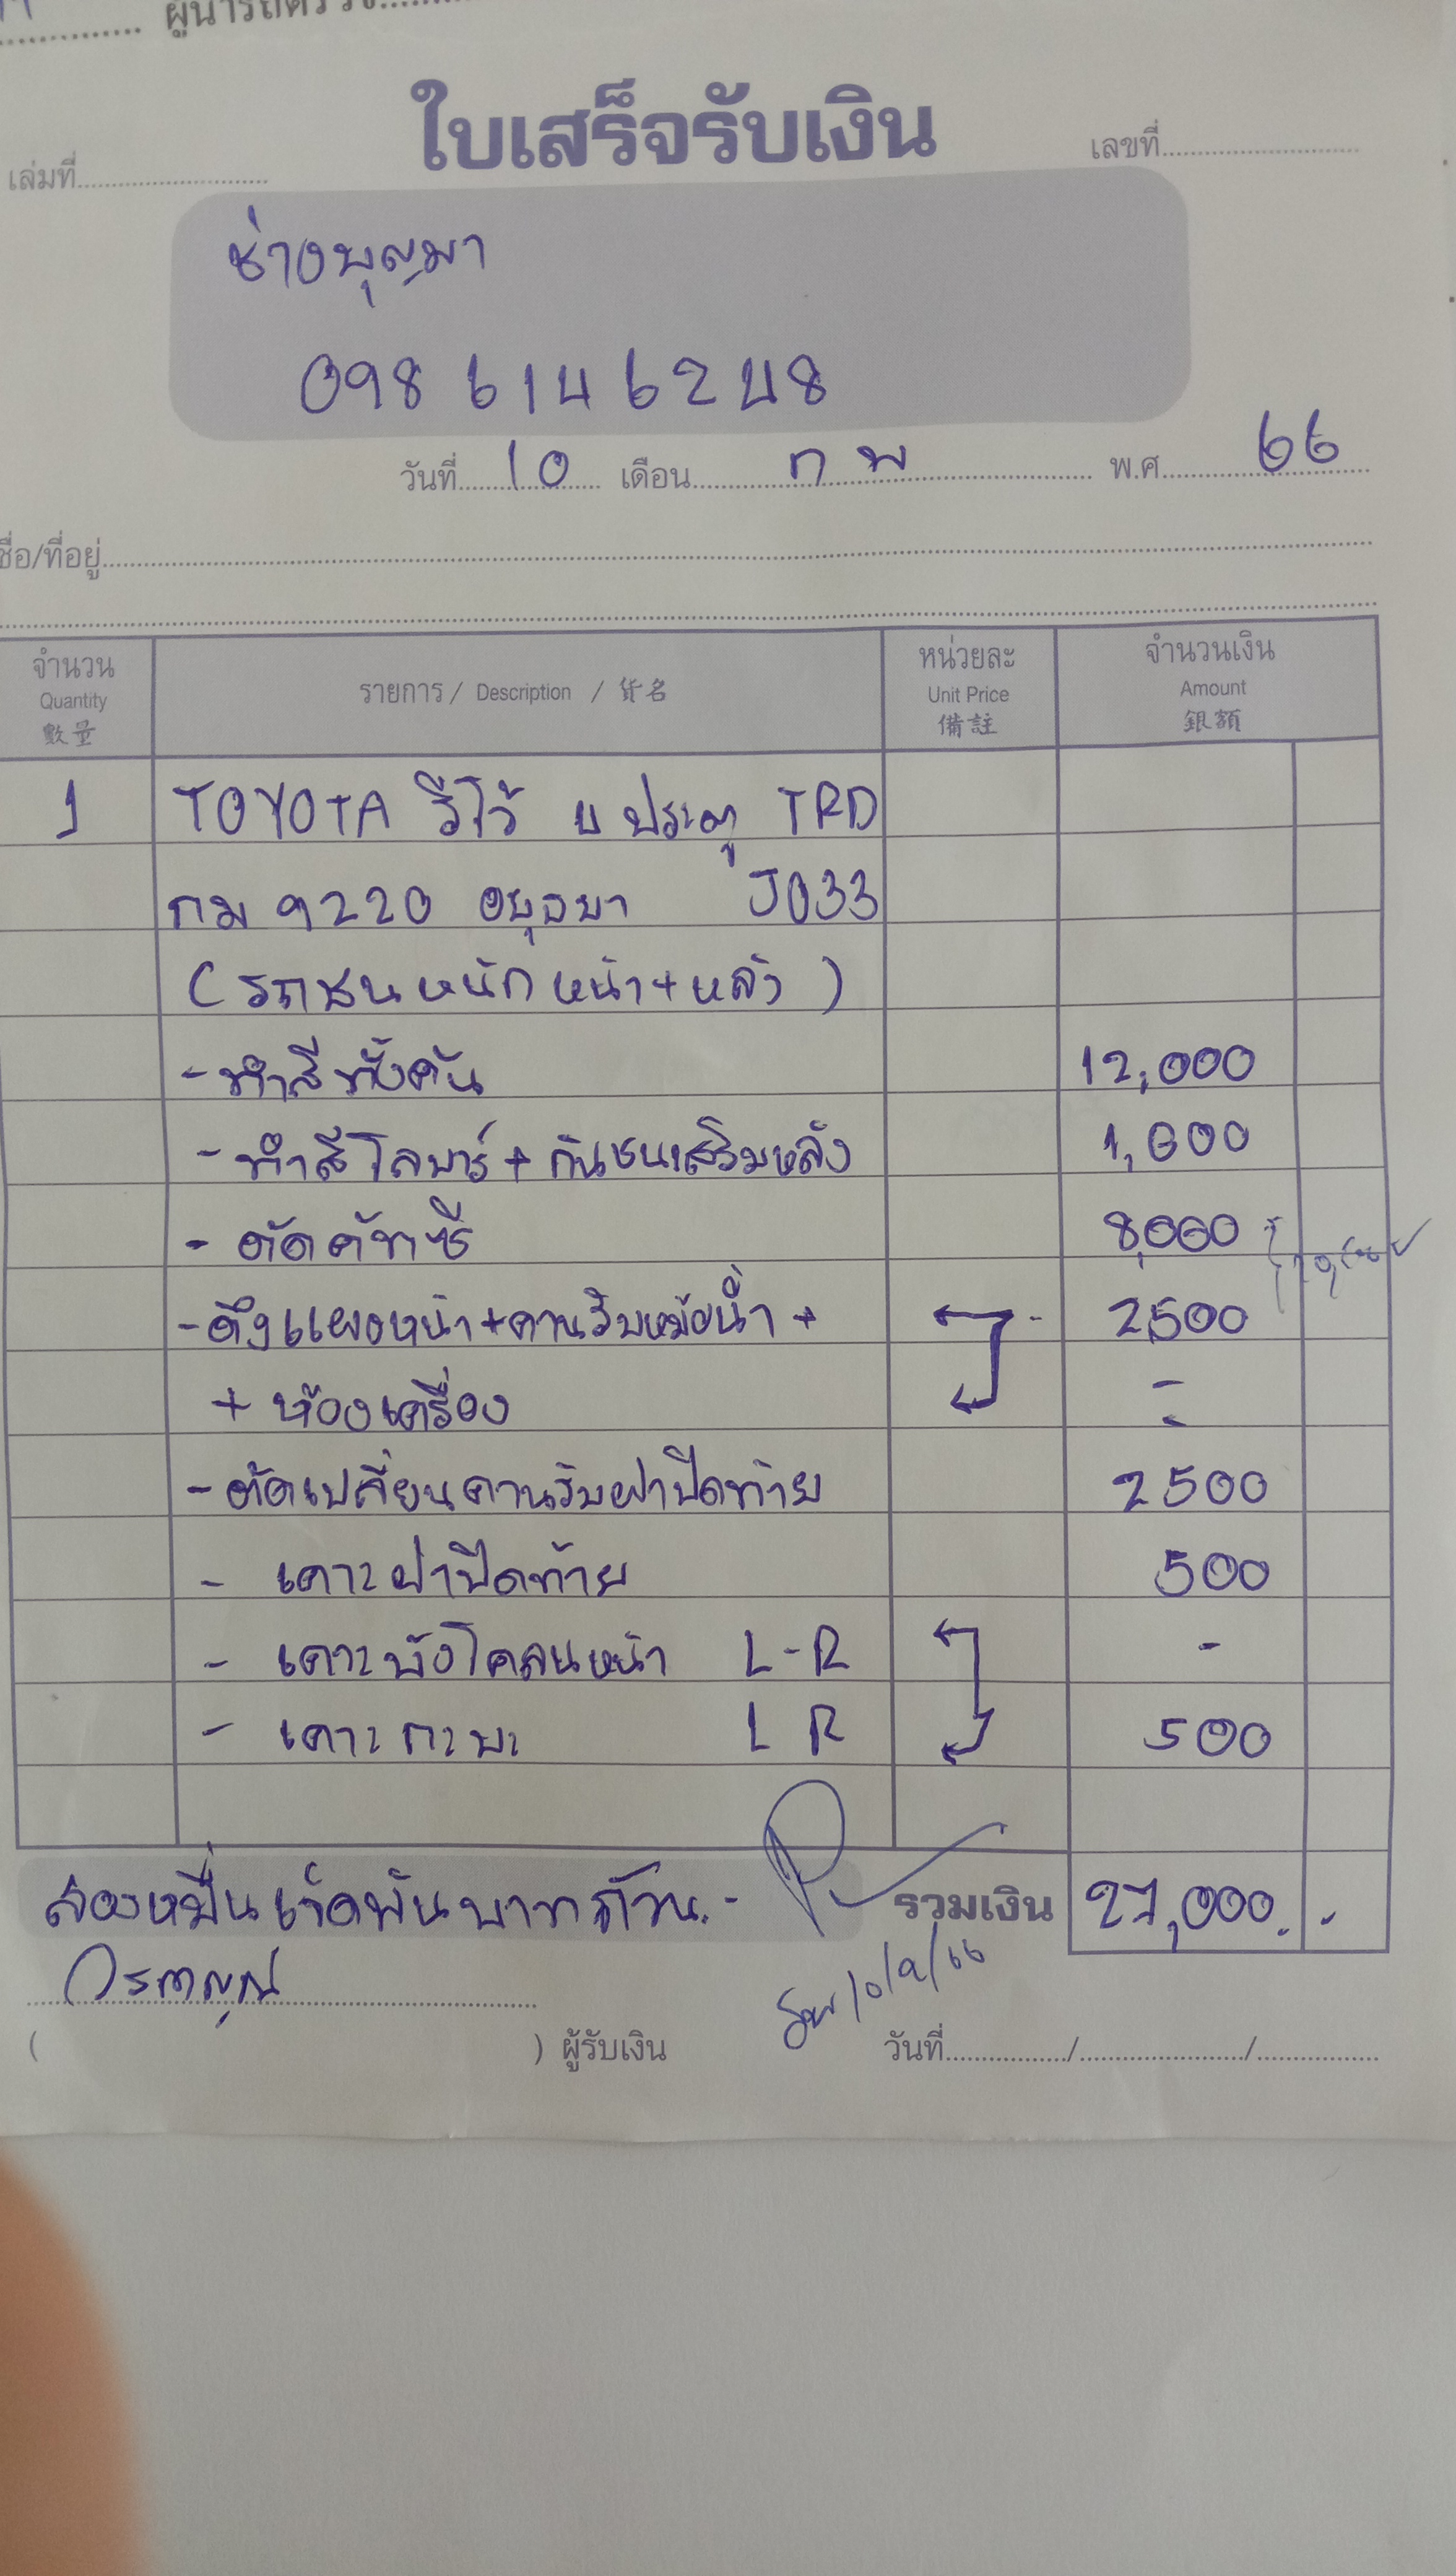 ใบเสร็จรับเงิน
เล่มที่ เลขที่
ช่างบุญมา
098 6146248
วันที่ 10 เดือน ก พ พ.ศ. 66
ชื่อ/ที่อยู่
จำนวน รายการ / Description / 貨名 หน่วยละ จำนวนเงิน
Quantity Unit Price Amount
數量 備註 銀額
1 TOYOTA รีโว้ 4 ประตู TRD
กม 9220 อยุธยา J033
(รถชนหนัก หน้า+หลัง)
- ทำสีทั้งคัน 12,000
- ทำสีโลบาร์ + กันชนเสริมหลัง 1,000
- ดัดคัทซี 8,000
- ดึงแผงหน้า+คานรับหม้อน้ำ + 2,500
+ ห้องเครื่อง -
- ตัดเปลี่ยนคานรับฝาปิดท้าย 2500
- เคาะฝาปิดท้าย 500
- เคาะบังโคลนหน้า L-R -
- เคาะกะบะ L R 500
สองหมื่นเจ็ดพันบาทถ้วน.- รวมเงิน 27,000.-
( ) ผู้รับเงิน วันที่ / /